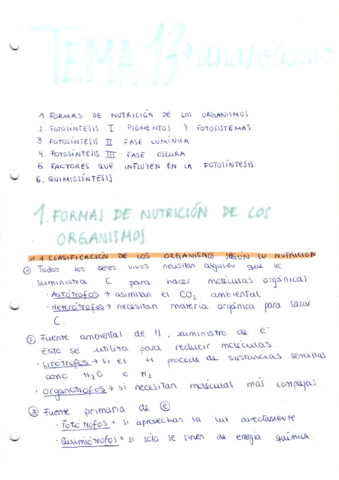 TEMA 13: anabolismo
1. FORMAS DE NUTRICIÓN DE LOS ORGANISMOS
2. FOTOSÍNTESIS I: PIGMENTOS Y FOTOSISTEMAS
3. FOTOSÍNTESIS II: FASE LUMÍNICA
4. FOTOSÍNTESIS III: FASE OSCURA
5. FACTORES QUE INFLUYEN EN LA FOTOSÍNTESIS
6. QUIMIOSÍNTESIS
1. FORMAS DE NUTRICIÓN DE LOS
ORGANISMOS
1.1 CLASIFICACIÓN DE LOS ORGANISMOS SEGÚN SU NUTRICIÓN
① Todos los seres vivos necesitan alguien que le
suministra C para hacer moléculas orgánicas
· Autótrofos → asimilan el CO₂ ambiental
· Heterótrofos → necesitan materia orgánica para sacar
C.
② Fuente ambiental de H, suministro de e⁻
Esto se utiliza para reducir moléculas.
· Litótrofos → si el H procede de sustancias sencillas
como H₂O o H₂
· Organótrofos → si necesitan moléculas más complejas
③ Fuente primaria de ⓔ
· Fotótrofos → si aprovechan la luz directamente
· Quimiótrofos → si sólo se sirven de energía química.